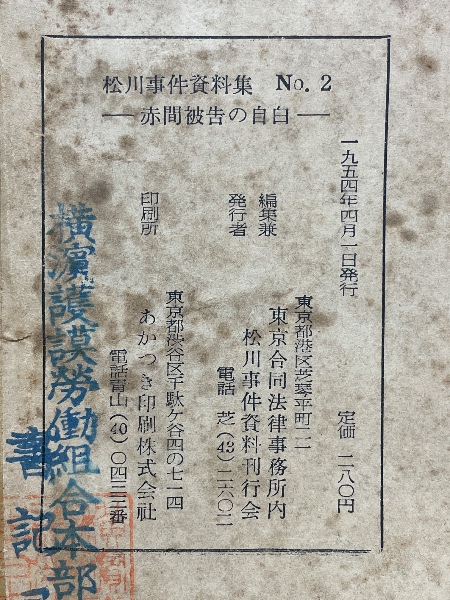 松川事件資料集 No. 2
―赤間被告の自白―
一九五四年四月一日発行
定価 二八〇円
編集兼
発行者
東京都港区芝琴平町二
東京合同法律事務所内
松川事件資料刊行会
電話 芝(43)二六〇二
印刷所
東京都渋谷区千駄ケ谷四の七一四
あかつき印刷株式会社
電話青山(40)〇四三三番
横濱護謨労働組合本部
書記